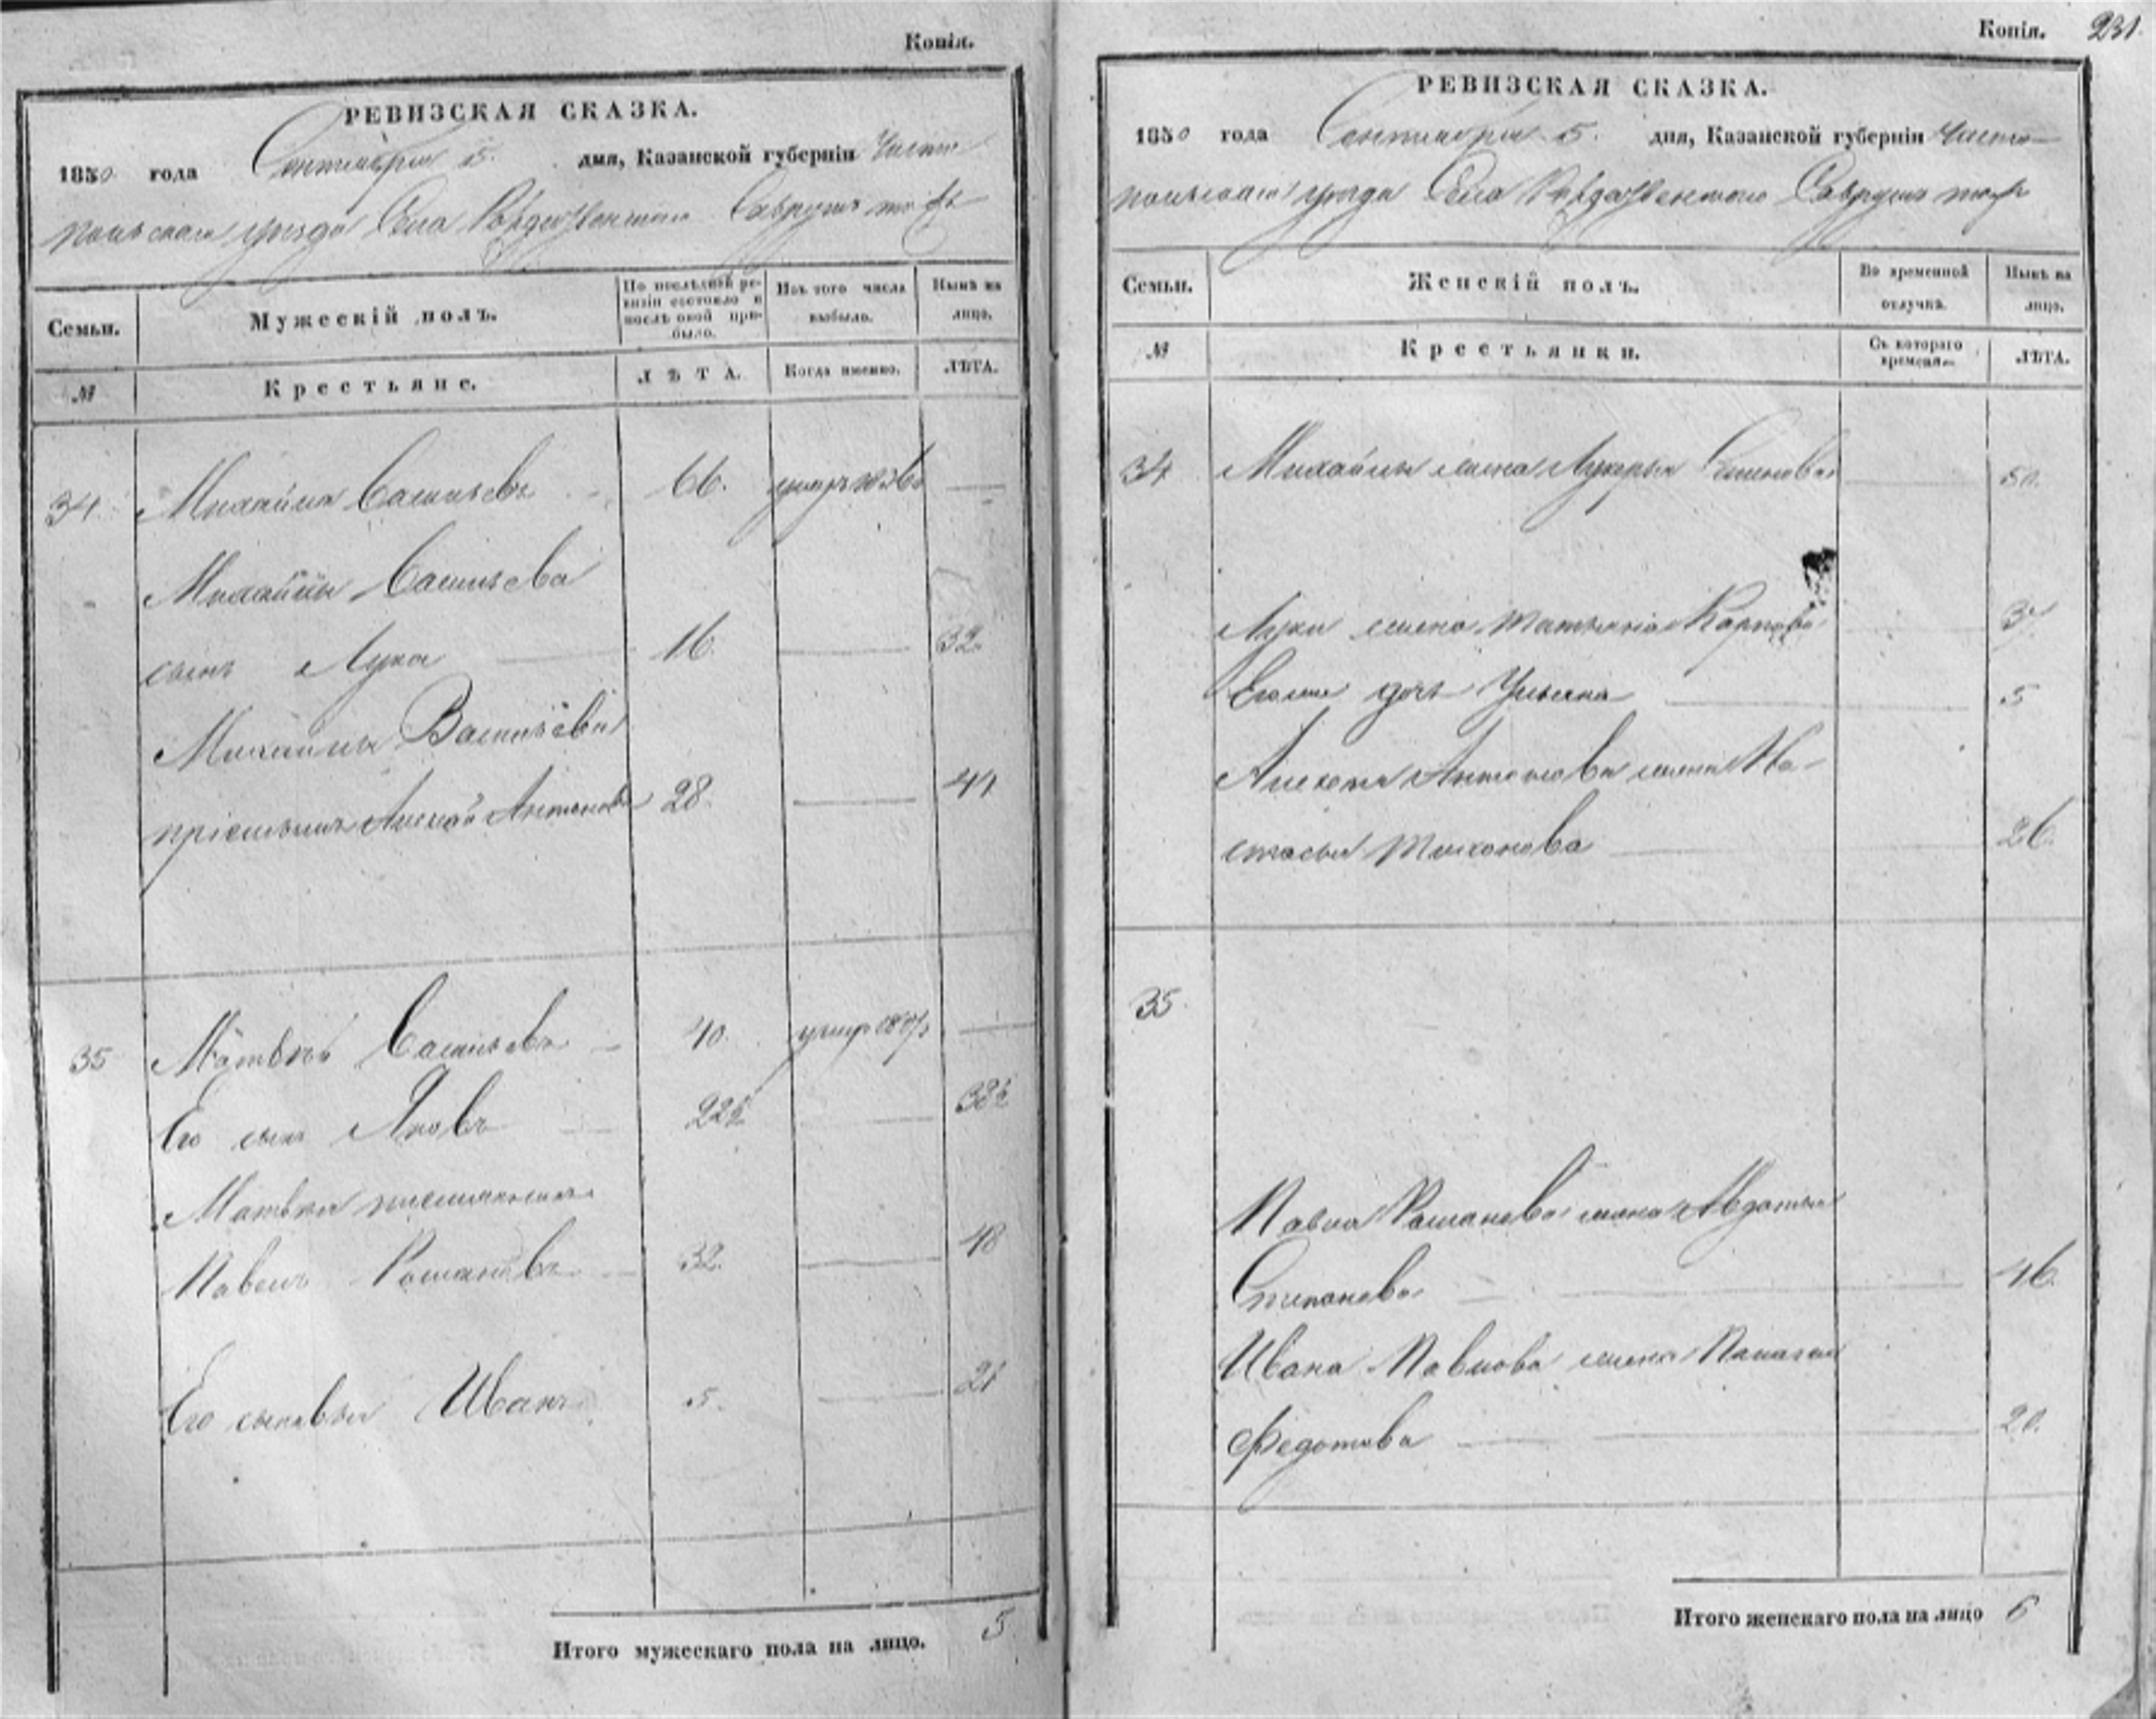 Копія.
РЕВИЗСКАЯ СКАЗКА.
1850 года Сентября 5. дня, Казанской губерніи Чисто-
польскаго уѣзда Села Рождественскаго Саврушъ тожъ
Семьи. Мужескій полъ. По послѣдней ре-визіи состояло и послѣ оной при-было. Изъ того числа выбыло. Нынѣ на лицо.
№ Крестьяне. ЛѢТА. Когда именно. ЛѢТА.
34. Михайла Васильевъ 66. умеръ —
Михайлы Васильева
сынъ Лука — 16. — 32
Михайлы Васильева
пріемышъ Алексѣй Антоновъ 28. — 44
35 Матвѣй Васильевъ — 40. умеръ —
Его сынъ Яковъ 22½ — 38½
Матвѣя
Павелъ Романовъ — 32. — 48
Его сыновья Иванъ 5. — 21
Итого мужескаго пола на лицо. 5
Копія. 231.
РЕВИЗСКАЯ СКАЗКА.
1850 года Сентября 5. дня, Казанской губерніи Чисто-
польскаго уѣзда Села Рождественскаго Саврушъ тожъ
Семьи. Женскій полъ. Во временной отлучкѣ. Нынѣ на лицо.
№ Крестьянки. Съ котораго времени. ЛѢТА.
34 Михайлы жена Лукерья Семенова — 50.
Луки жена Татьяна Карпова — 37
Ево же дочь Ульяна — 5
Алексѣя Антонова жена На-
стасья Тихонова — 26.
35.
Павла Романова жена Авдотья
Степанова — 46.
Ивана Павлова жена
Федотова — 20.
Итого женскаго пола на лицо 6